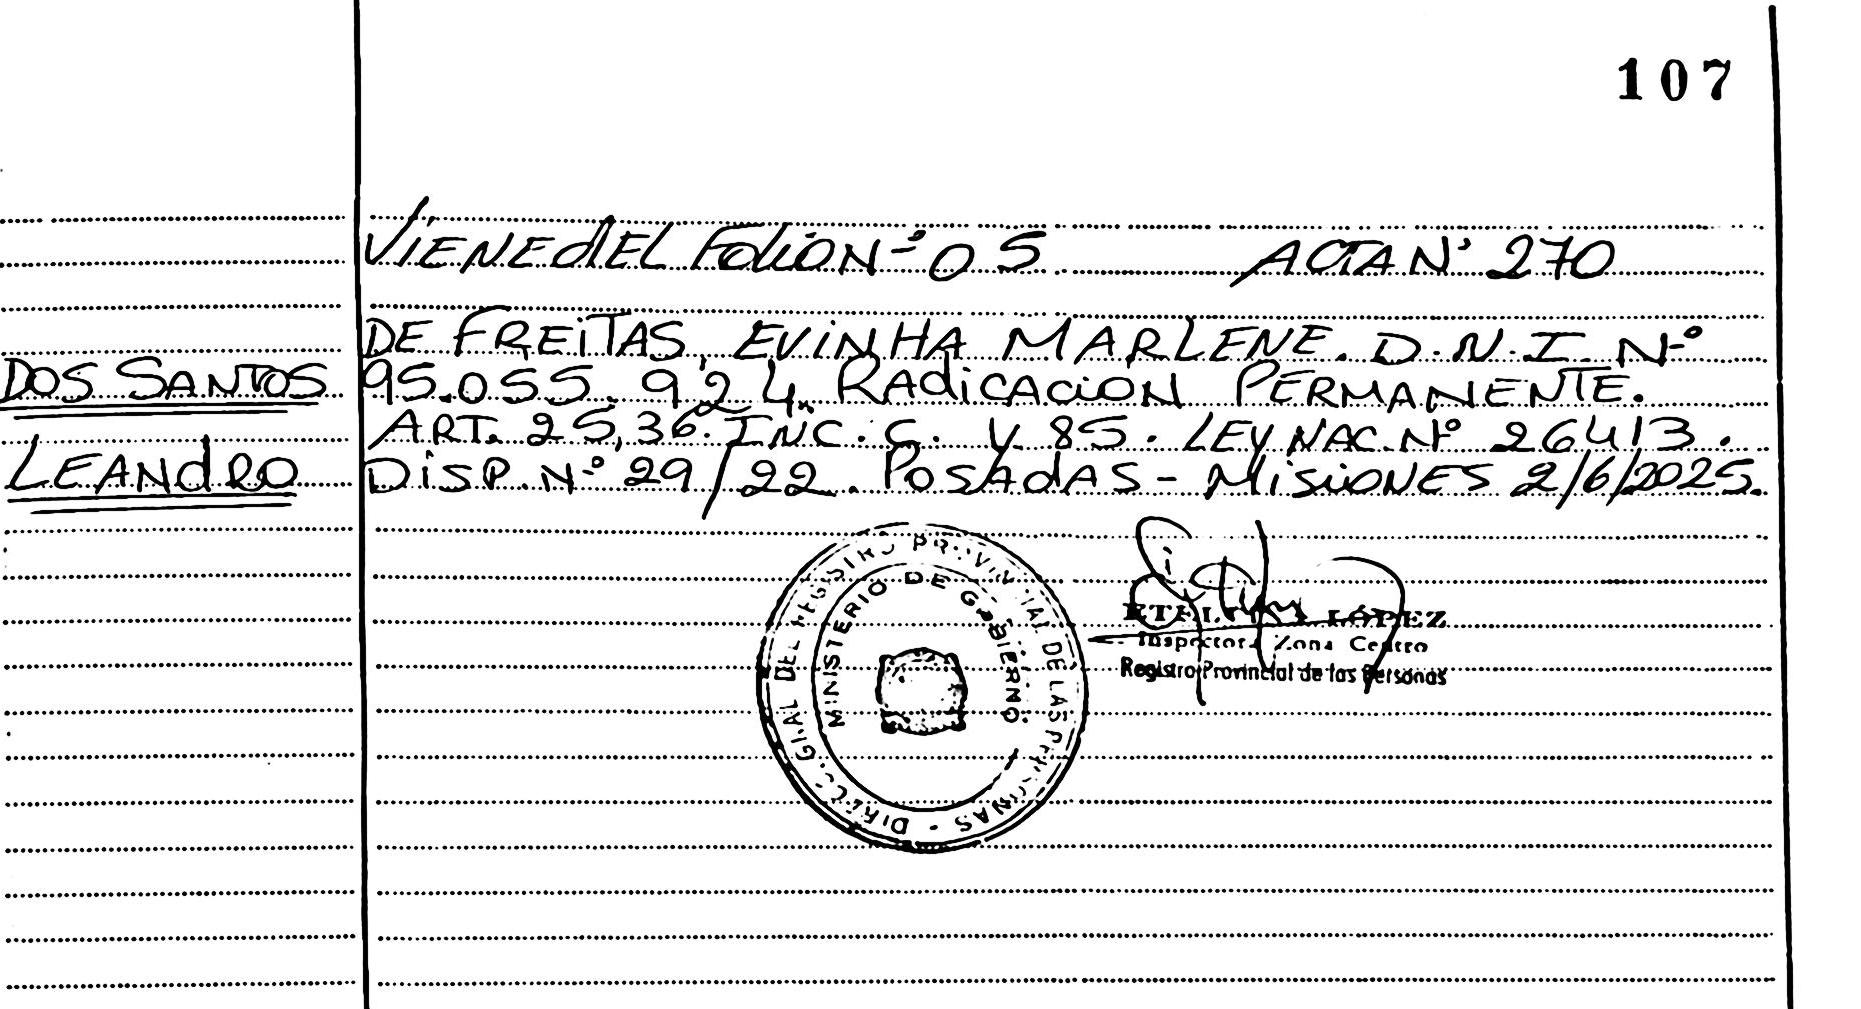 107
VIENE dEL FOLIO N-º 05 ACTA Nº 270
DE FREITAS, EVINHA MARLENE. D.N.I. N-º
DOS SANTOS
95.055.924. RAdICACION PERMANENTE.
ART. 25,36. INC. C. Y 85. LEY NAC. Nº 26413.
LEANdRO
DISP. N-º 29/22. POSAdAS - MISIONES 2/6/2025.
DIREC. GRAL DEL REGISTRO PROVINCIAL DE LAS PERSONAS -
MINISTERIO DE GOBIERNO
LÓPEZ
Inspectora Zona Centro
Registro Provincial de las Personas